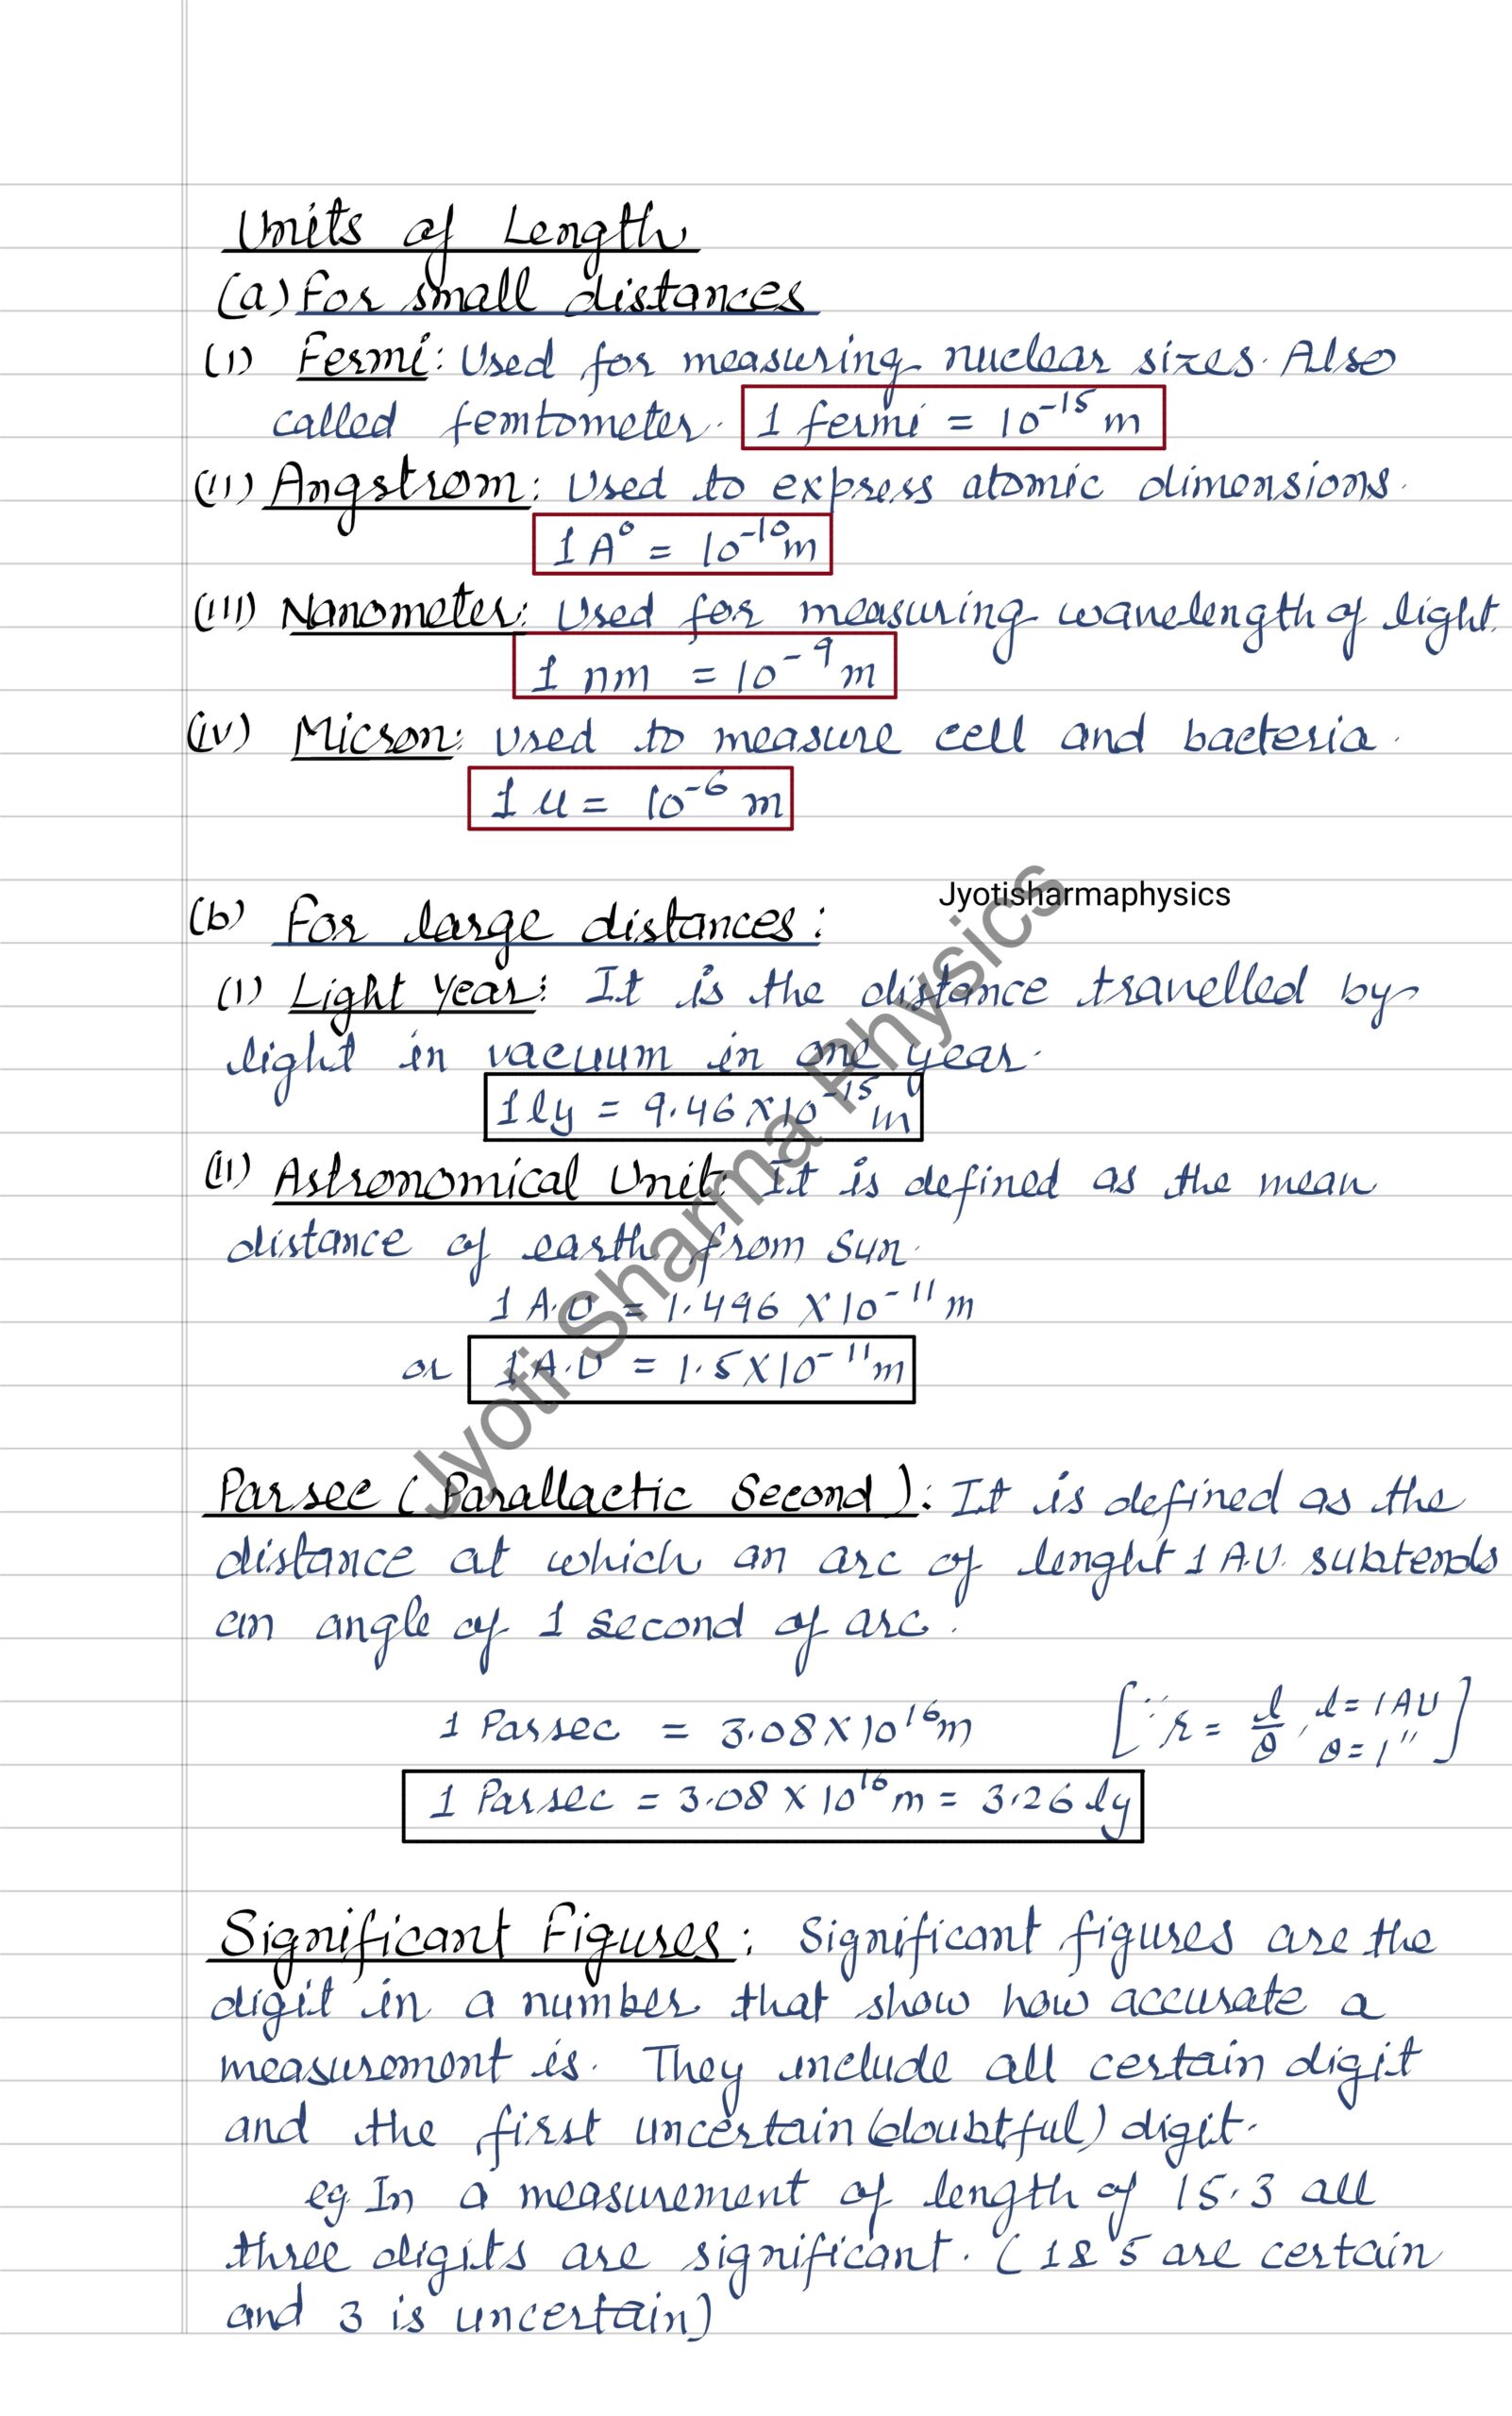 Units of Length
(a) For small distances
(i) Fermi: Used for measuring nuclear sizes. Also
called femtometer. 1 fermi = 10⁻¹⁵ m
(ii) Angstrom: Used to express atomic dimensions.
1 A° = 10⁻¹⁰ m
(iii) Nanometer: Used for measuring wavelength of light.
1 nm = 10⁻⁹ m
(iv) Micron: Used to measure cell and bacteria.
1 μ = 10⁻⁶ m
Jyotisharmaphysics
(b) For large distances:
(i) Light Year: It is the distance travelled by
light in vacuum in one year.
1 ly = 9.46 × 10⁻¹⁵ m
(ii) Astronomical Unit: It is defined as the mean
distance of earth from Sun.
1 A.U = 1.496 × 10⁻¹¹ m
or 1 A.U = 1.5 × 10⁻¹¹ m
Jyoti Sharma Physics
Parsec (Parallactic Second): It is defined as the
distance at which an arc of lenght 1 A.U. subtends
an angle of 1 second of arc.
1 Parsec = 3.08 × 10¹⁶ m [∵ r = l/θ, l = 1 AU θ = 1″]
1 Parsec = 3.08 × 10¹⁶ m = 3.26 ly
Significant Figures: Significant figures are the
digit in a number that show how accurate a
measurement is. They include all certain digit
and the first uncertain (doubtful) digit.
eg. In a measurement of length of 15.3 all
three digits are significant. (1 & 5 are certain
and 3 is uncertain)